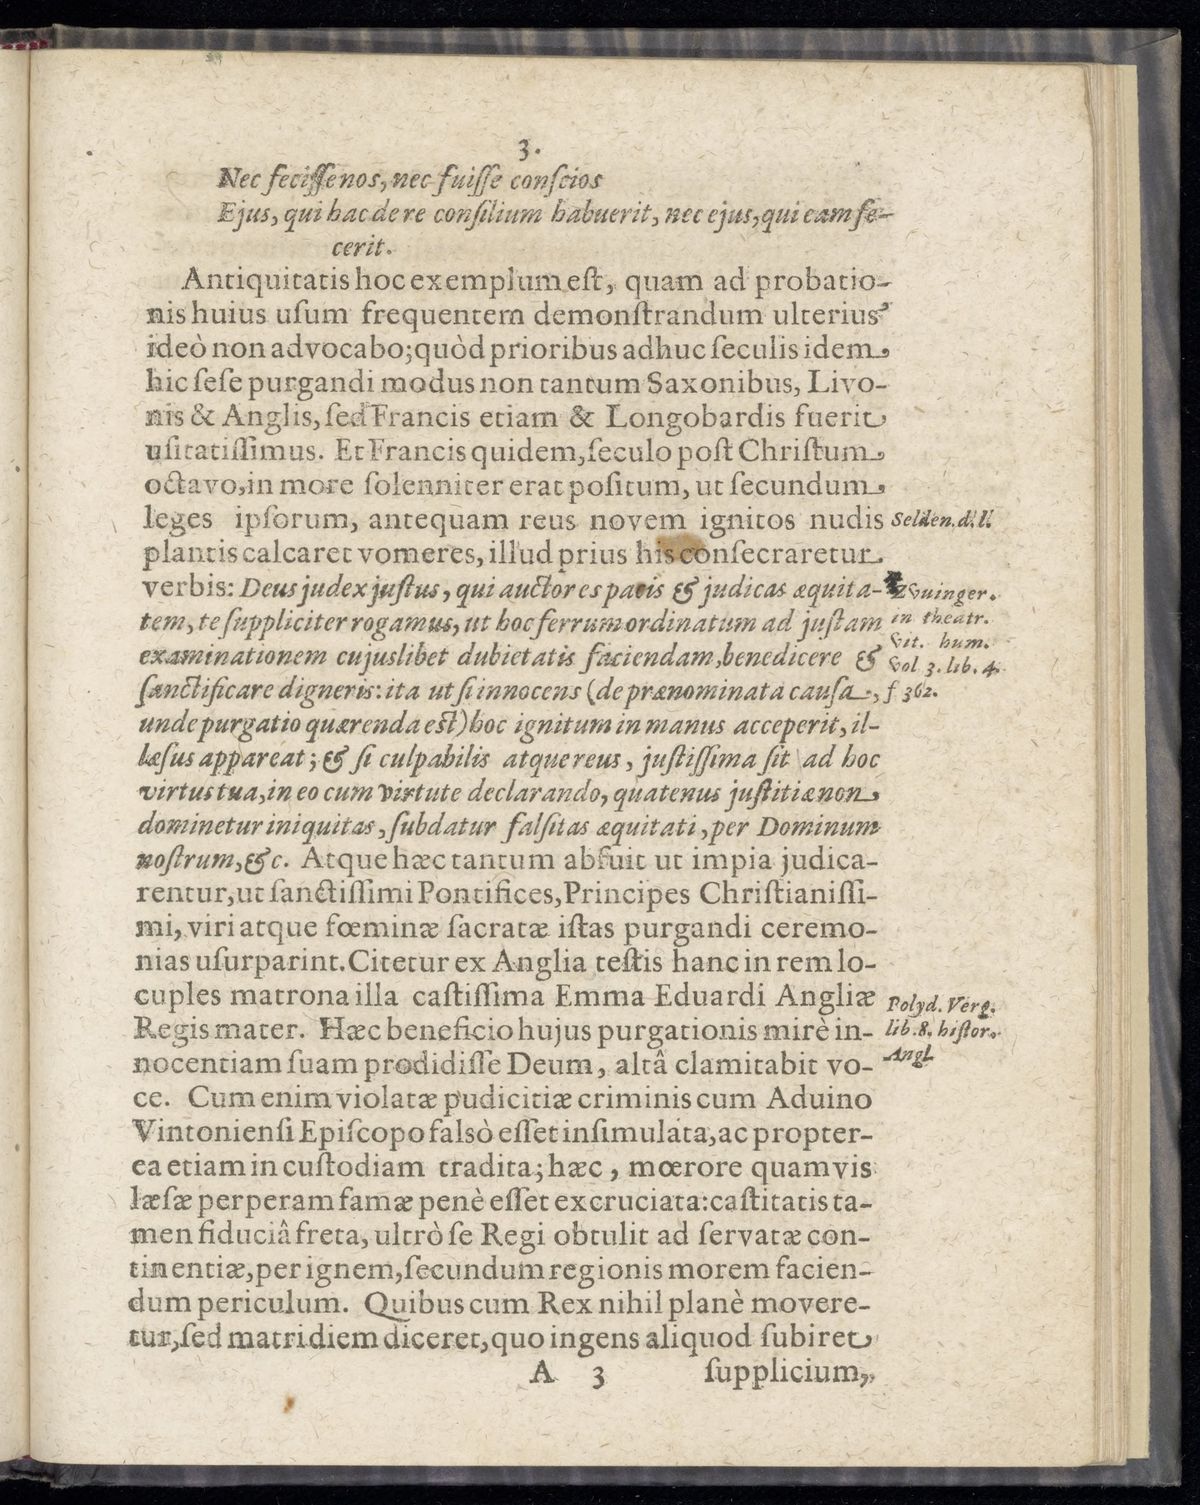 3.
Nec feciſſe nos, nec fuiſſe conſcios
Ejus, qui hac de re conſilium habuerit, nec ejus, qui eam fe-
cerit.
Antiquitatis hoc exemplum eſt, quam ad probatio-
nis huius uſum frequentem demonſtrandum ulterius
ideò non advocabo; quòd prioribus adhuc ſeculis idem
hic ſeſe purgandi modus non tantum Saxonibus, Livo-
nis & Anglis, ſed Francis etiam & Longobardis fuerit
uſitatiſſimus. Et Francis quidem, ſeculo poſt Chriſtum
octavo, in more ſolenniter erat poſitum, ut ſecundum
leges ipſorum, antequam reus novem ignitos nudis
Selden. d. l.
plantis calcaret vomeres, illud prius his conſecraretur
verbis: Deus judex juſtus, qui auctor es pacis & judicas æquita-
Zvuinger.
tem, te ſuppliciter rogamus, ut hoc ferrum ordinatum ad juſtam
in theatr.
examinationem cujuslibet dubietatis faciendam, benedicere &
vit. hum.
vol. 3. lib. 4.
ſanctificare digneris: ita ut ſi innocens (de prænominata cauſa,
f 362.
unde purgatio quærenda eſt) hoc ignitum in manus acceperit, il-
læſus appareat; & ſi culpabilis atque reus, juſtiſſima ſit ad hoc
virtus tua, in eo cum virtute declarando, quatenus juſtitiæ non
dominetur iniquitas, ſubdatur falſitas æquitati, per Dominum
noſtrum, &c. Atque hæc tantum abfuit ut impia judica-
rentur, ut ſanctiſſimi Pontifices, Principes Chriſtianiſſi-
mi, viri atque fœminæ ſacratæ iſtas purgandi ceremo-
nias uſurparint. Citetur ex Anglia teſtis hanc in rem lo-
cuples matrona illa caſtiſſima Emma Eduardi Angliæ
Polyd. Verg.
Regis mater. Hæc beneficio hujus purgationis mirè in-
lib. 8. hiſtor.
nocentiam ſuam prodidiſſe Deum, altâ clamitabit vo-
Angl.
ce. Cum enim violatæ pudicitiæ criminis cum Aduino
Vintonienſi Epiſcopo falsò eſſet inſimulata, ac propter-
ea etiam in cuſtodiam tradita; hæc, mœrore quamvis
læſæ perperam famæ penè eſſet excruciata: caſtitatis ta-
men fiduciâ freta, ultrò ſe Regi obtulit ad ſervatæ con-
tinentiæ, per ignem, ſecundum regionis morem facien-
dum periculum. Quibus cum Rex nihil planè movere-
tur, ſed matri diem diceret, quo ingens aliquod ſubiret
A 3 ſupplicium,